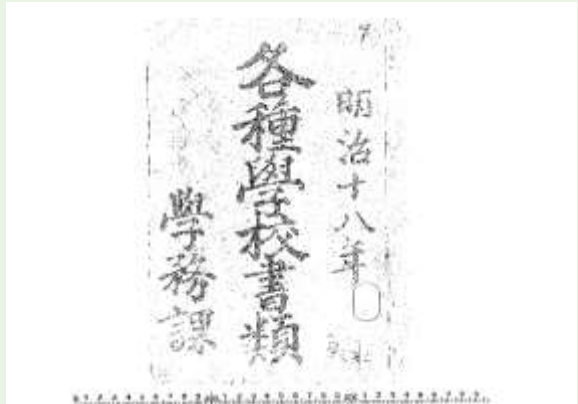 明治十八年
各種學校書類
學務課